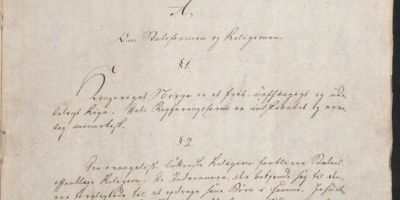 A.
Om Statsformen og Religionen.
§ 1.
Kongeriget Norge er et frit, uafhængigt og ude-
leligt Rige. Dets Regjeringsform er indskrænket og arve-
lig monarkisk.
§ 2.
Den evangelisk-lutterske Religion forbliver Statens
offentlige Religion. De Indvaanere, der bekjende sig til den,
ere forpligtede til at opdrage sine Børn i samme. Jesuiter